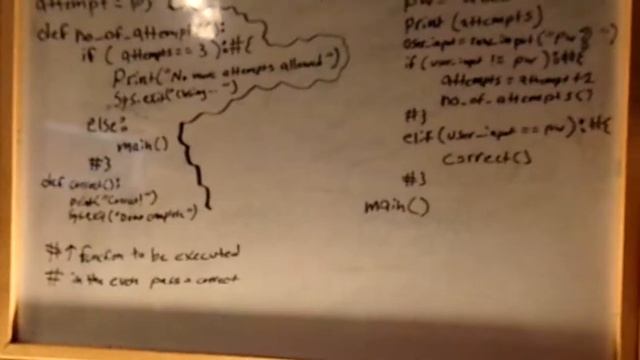 def no_of_attempts():
if (attempts == 3):#{
Print("No more attempts allowed")
Sys.exit("Closing...")
else:
main()
#}
def correct():
print("Correct!")
Sys.exit("Demo complete")
#↑ function to be executed
# in the even pass is correct
Print (attempts)
user_input = raw_input("pw? ")
if (user_input != pw):#{
attempts = attempt+1
no_of_attempts()
#}
elif (user_input == pw):#{
correct()
#}
main()